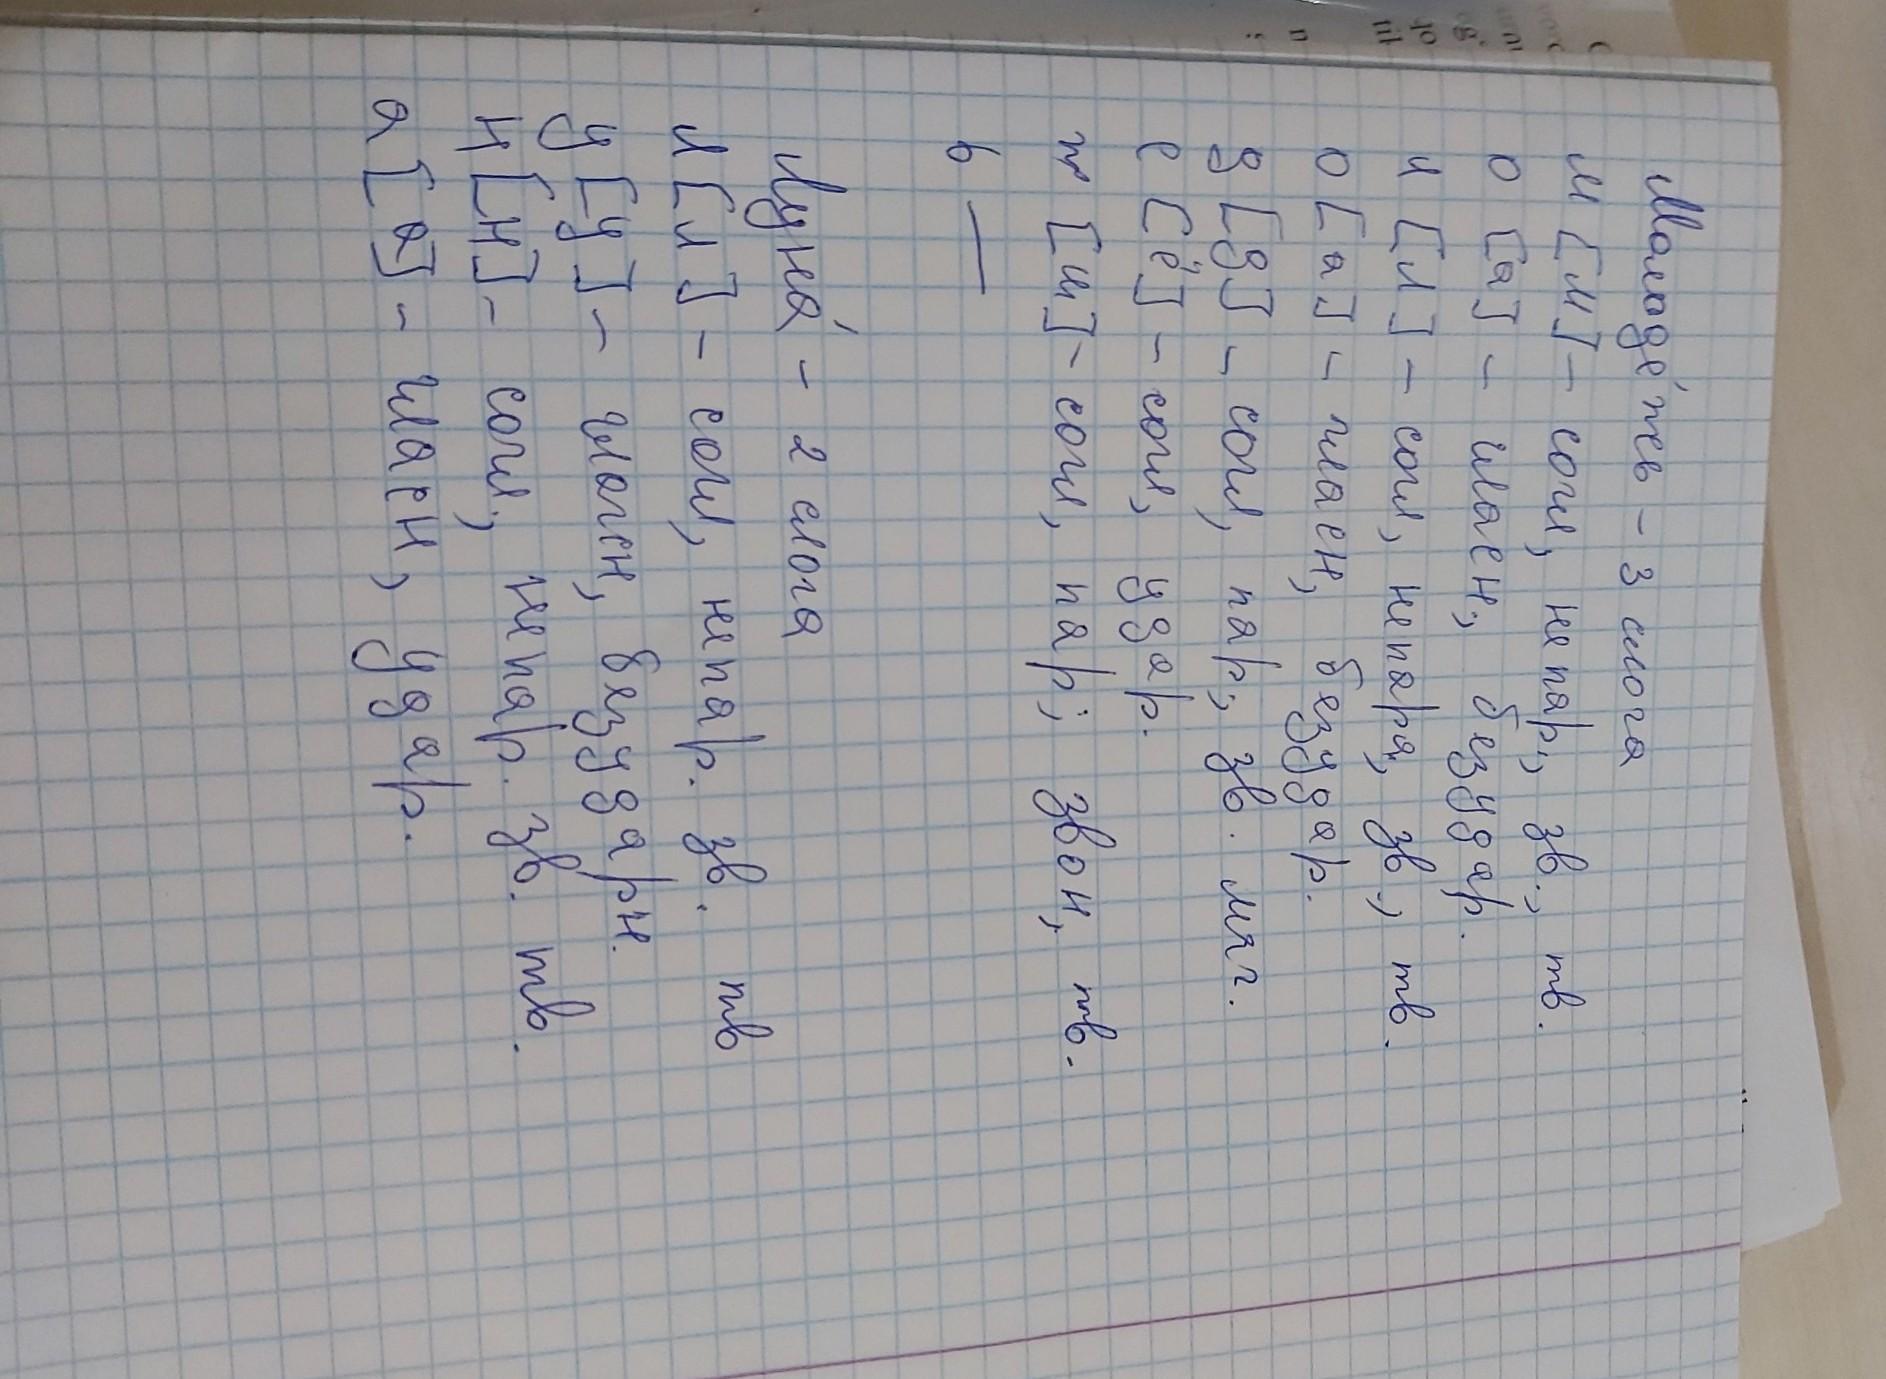 Молоде́жь - 3 слога
м [м] - согл, непар., зв., тв.
о [а] - гласн., безудар.
л [л] - согл, непара, зв., тв.
о [а] - гласн, безудар.
д [д] - согл, пар., зв. мяг.
е [ё] - согл, удар.
ж [ш] - согл, пар., звон, тв.
ь —
Луна́ - 2 слога
л [л] - согл, непар. зв. тв
у [у] - гласн, безударн.
н [н] - согл, непар. зв. тв.
а [а] - гласн, удар.